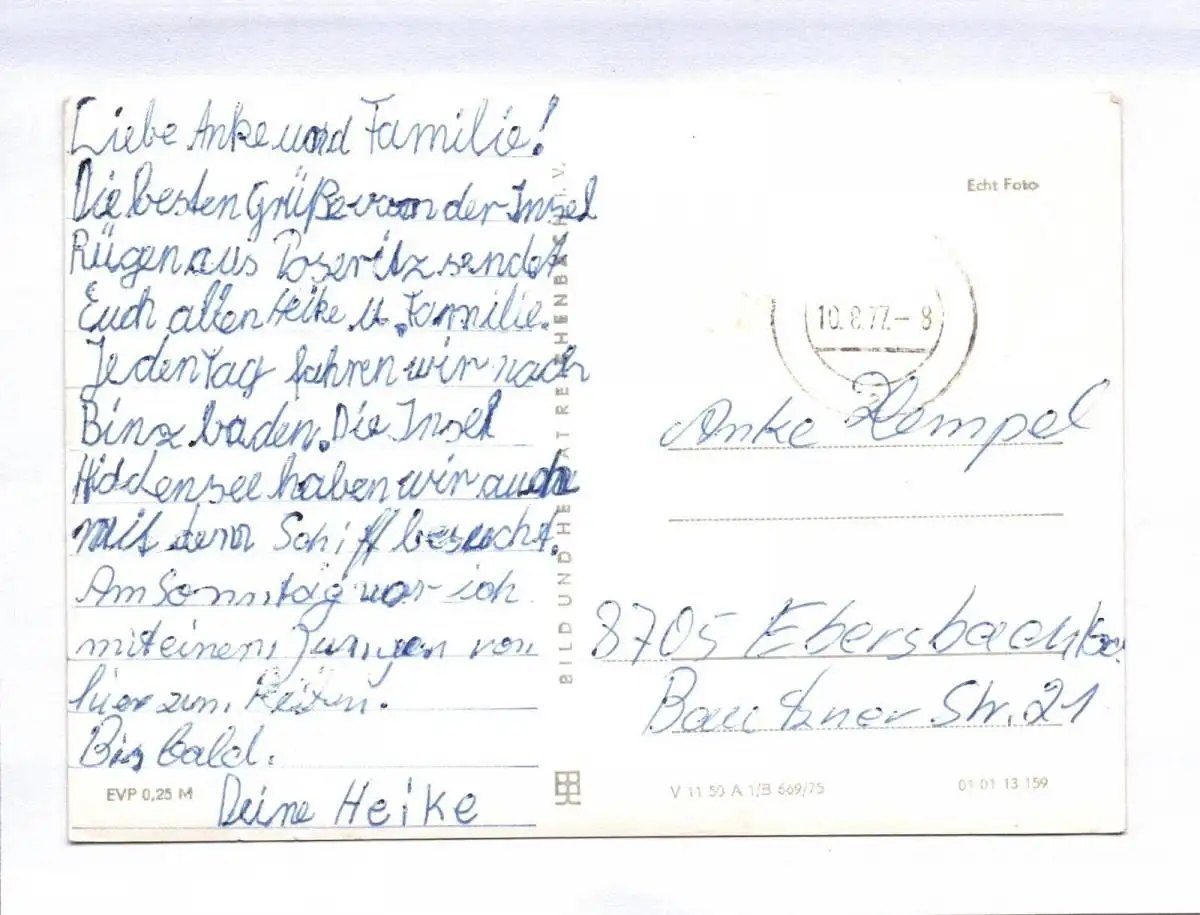 Liebe Anke und Familie!
Die besten Grüße von der Insel
Rügen aus Poseritz sendet
Euch allen Heike u. Familie.
Jeden Tag fahren wir nach
Binz baden. Die Insel
Hiddensee haben wir auch
mit dem Schiff besucht.
Am Sonntag war ich
mit einem Jungen von
hier zum Reiten.
Bis bald.
Deine Heike
EVP 0,25 M
BILD UND HEIMAT REICHENBACH I. V.
Echt Foto
10.8.77.-8
Anke Hempel
8705 Ebersbach
Bautzner Str. 21
V 11 50 A 1/B 669/75
01 01 13 159